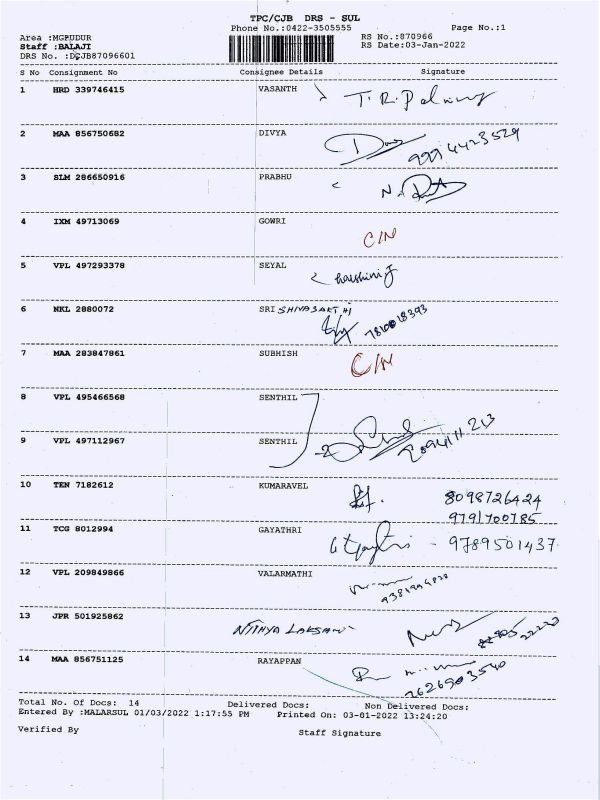 TPC/CJB DRS - SUL
Phone No.:0422-3505555 Page No.:1
Area :MGPUDUR RS No.:870966
Staff :BALAJI RS Date:03-Jan-2022
DRS No. :DCJB87096601
S No Consignment No Consignee Details Signature
1 HRD 339746415 VASANTH
2 MAA 856750682 DIVYA
3 SLM 286650916 PRABHU
4 IXM 49713069 GOWRI
C/N
5 VPL 497293378 SEYAL
harshini J
6 NKL 2880072 SRI SHIVASAKTHI
7 MAA 283847861 SUBHISH
C/N
8 VPL 495466568 SENTHIL
9 VPL 497112967 SENTHIL
10 TEN 7182612 KUMARAVEL
8098726424
9791700785
11 TCG 8012994 GAYATHRI
- 9789501437
12 VPL 209849866 VALARMATHI
13 JPR 501925862
14 MAA 856751125 RAYAPPAN
Total No. Of Docs: 14 Delivered Docs: Non Delivered Docs:
Entered By :MALARSUL 01/03/2022 1:17:55 PM Printed On: 03-01-2022 13:24:20
Verified By Staff Signature